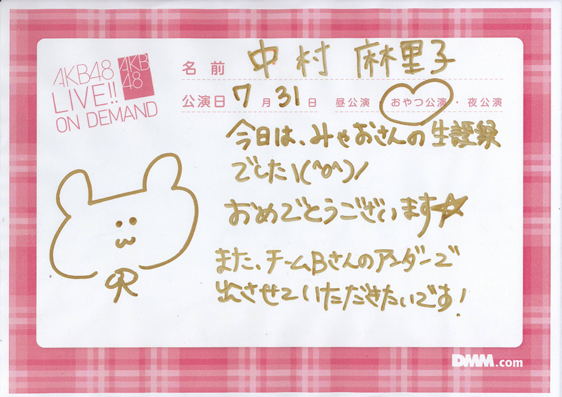 AKB48
LIVE!!
ON DEMAND
AKB
48
名前 中村 麻里子
公演日 7月31日 昼公演・おやつ公演・夜公演
今日は、みゃおさんの生誕祭
でした\(^o^)/
おめでとうございます☆
また、チームBさんのアンダーで
出させていただきたいです!
DMM.com